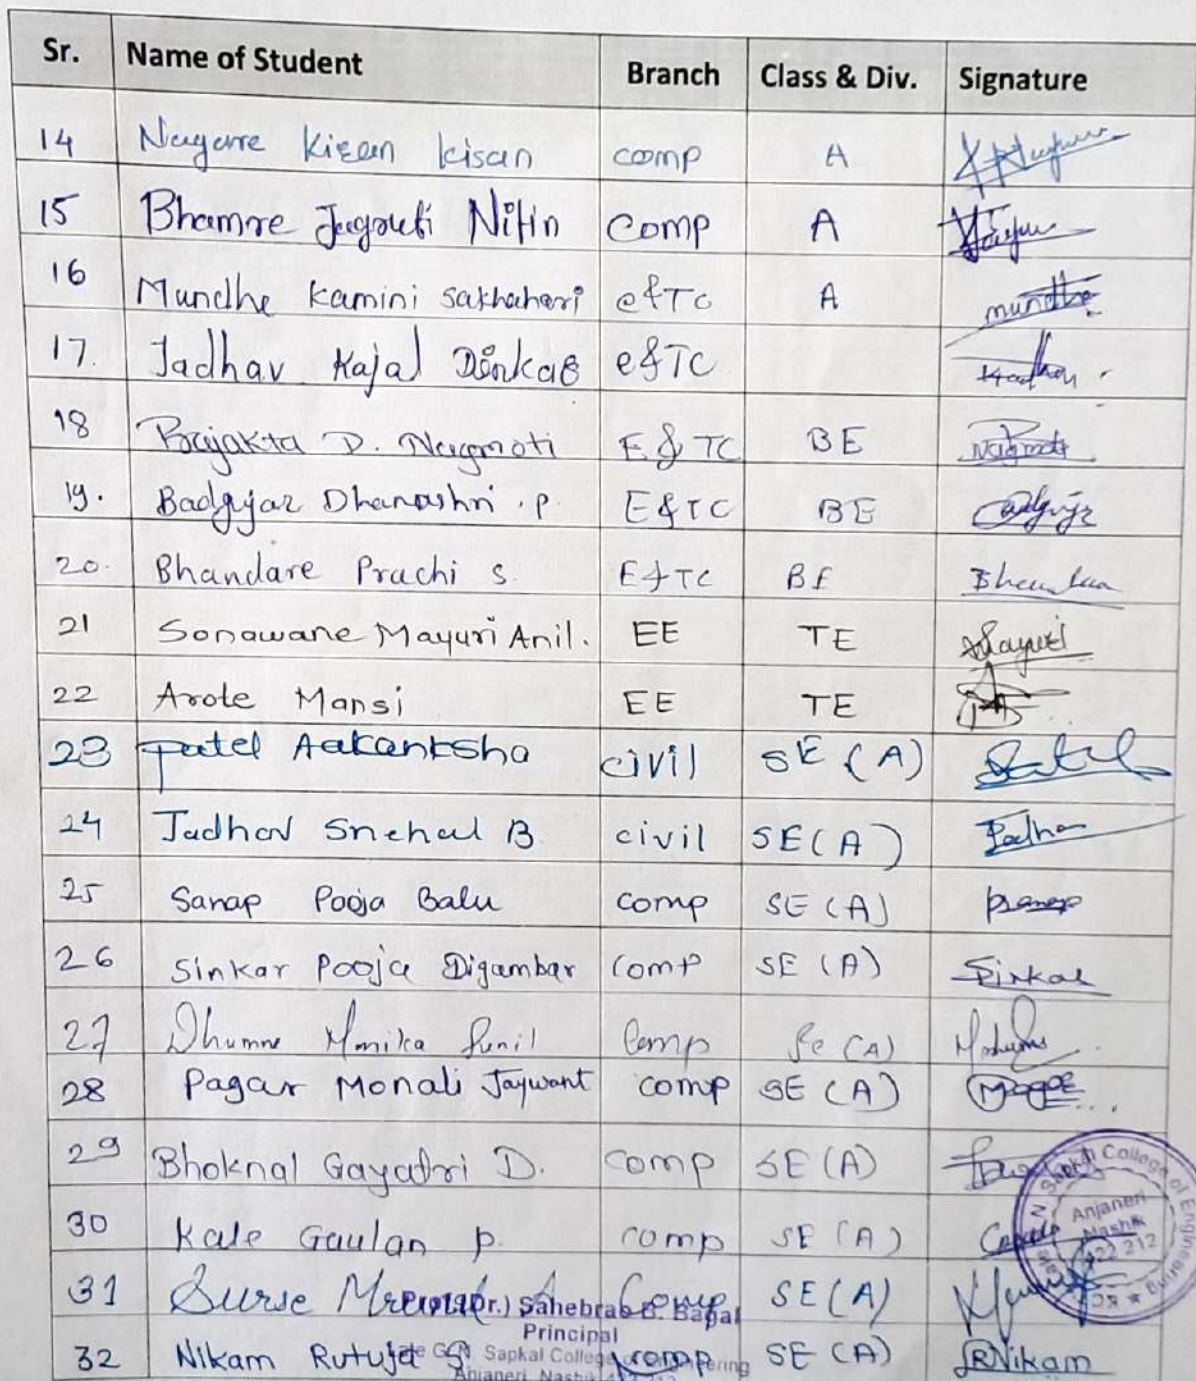 Sr. Name of Student Branch Class & Div. Signature
14 Nagare Kisan kisan comp A
15 Bhamre Jagruti Nitin Comp A
16 Mundhe Kamini sakhahari e&TC A mundhe
17. Jadhav Kajal Dinkar e&TC
18 Prajakta D. Nagmoti E & TC BE Nagmoti
19. Badgujar Dhanashri . p. E&TC BE
20. Bhandare Prachi S. E&TC BE
21 Sonawane Mayuri Anil. EE TE Mayuri
22 Arote Mansi EE TE
23 Patel Aakanksha civil SE (A) Patil
24 Jadhav Snehal B. civil SE(A)
25 Sanap Pooja Balu comp SE (A)
26 Sinkar Pooja Digambar comp SE (A) Sinkar
27 Dhumne Monika Sunil Comp Se (A)
28 Pagar Monali Jaywant comp SE (A)
29 Bhoknal Gayatri D. comp SE (A)
30 Kale Gaulan p. comp SE (A)
31 Surse Comp SE(A)
32 Nikam Rutuja S. comp SE (A) RNikam
Prof.(Dr.) Sahebrao B. Bagal
Principal
Late G. N. Sapkal College of Engineering
Anjaneri, Nashik 422 212
N. Sapkal College of Engineering
Anjaneri
Nashik
422 212